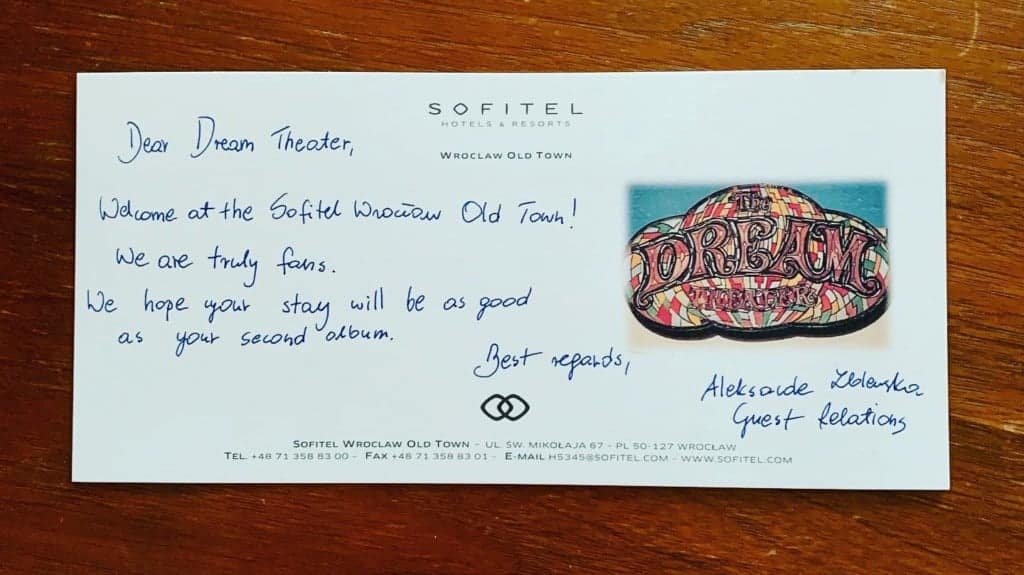 SOFITEL
HOTELS & RESORTS
WROCLAW OLD TOWN
Dear Dream Theater,
Welcome at the Sofitel Wrocław Old Town!
We are truly fans.
We hope your stay will be as good
as your second album.
Best regards,
The
DREAM
THEATER
Guest Relations
SOFITEL WROCLAW OLD TOWN - UL. ŚW. MIKOŁAJA 67 - PL 50-127 WROCŁAW
TEL. +48 71 358 83 00 - FAX +48 71 358 83 01 - E-MAIL H5345@SOFITEL.COM - WWW.SOFITEL.COM